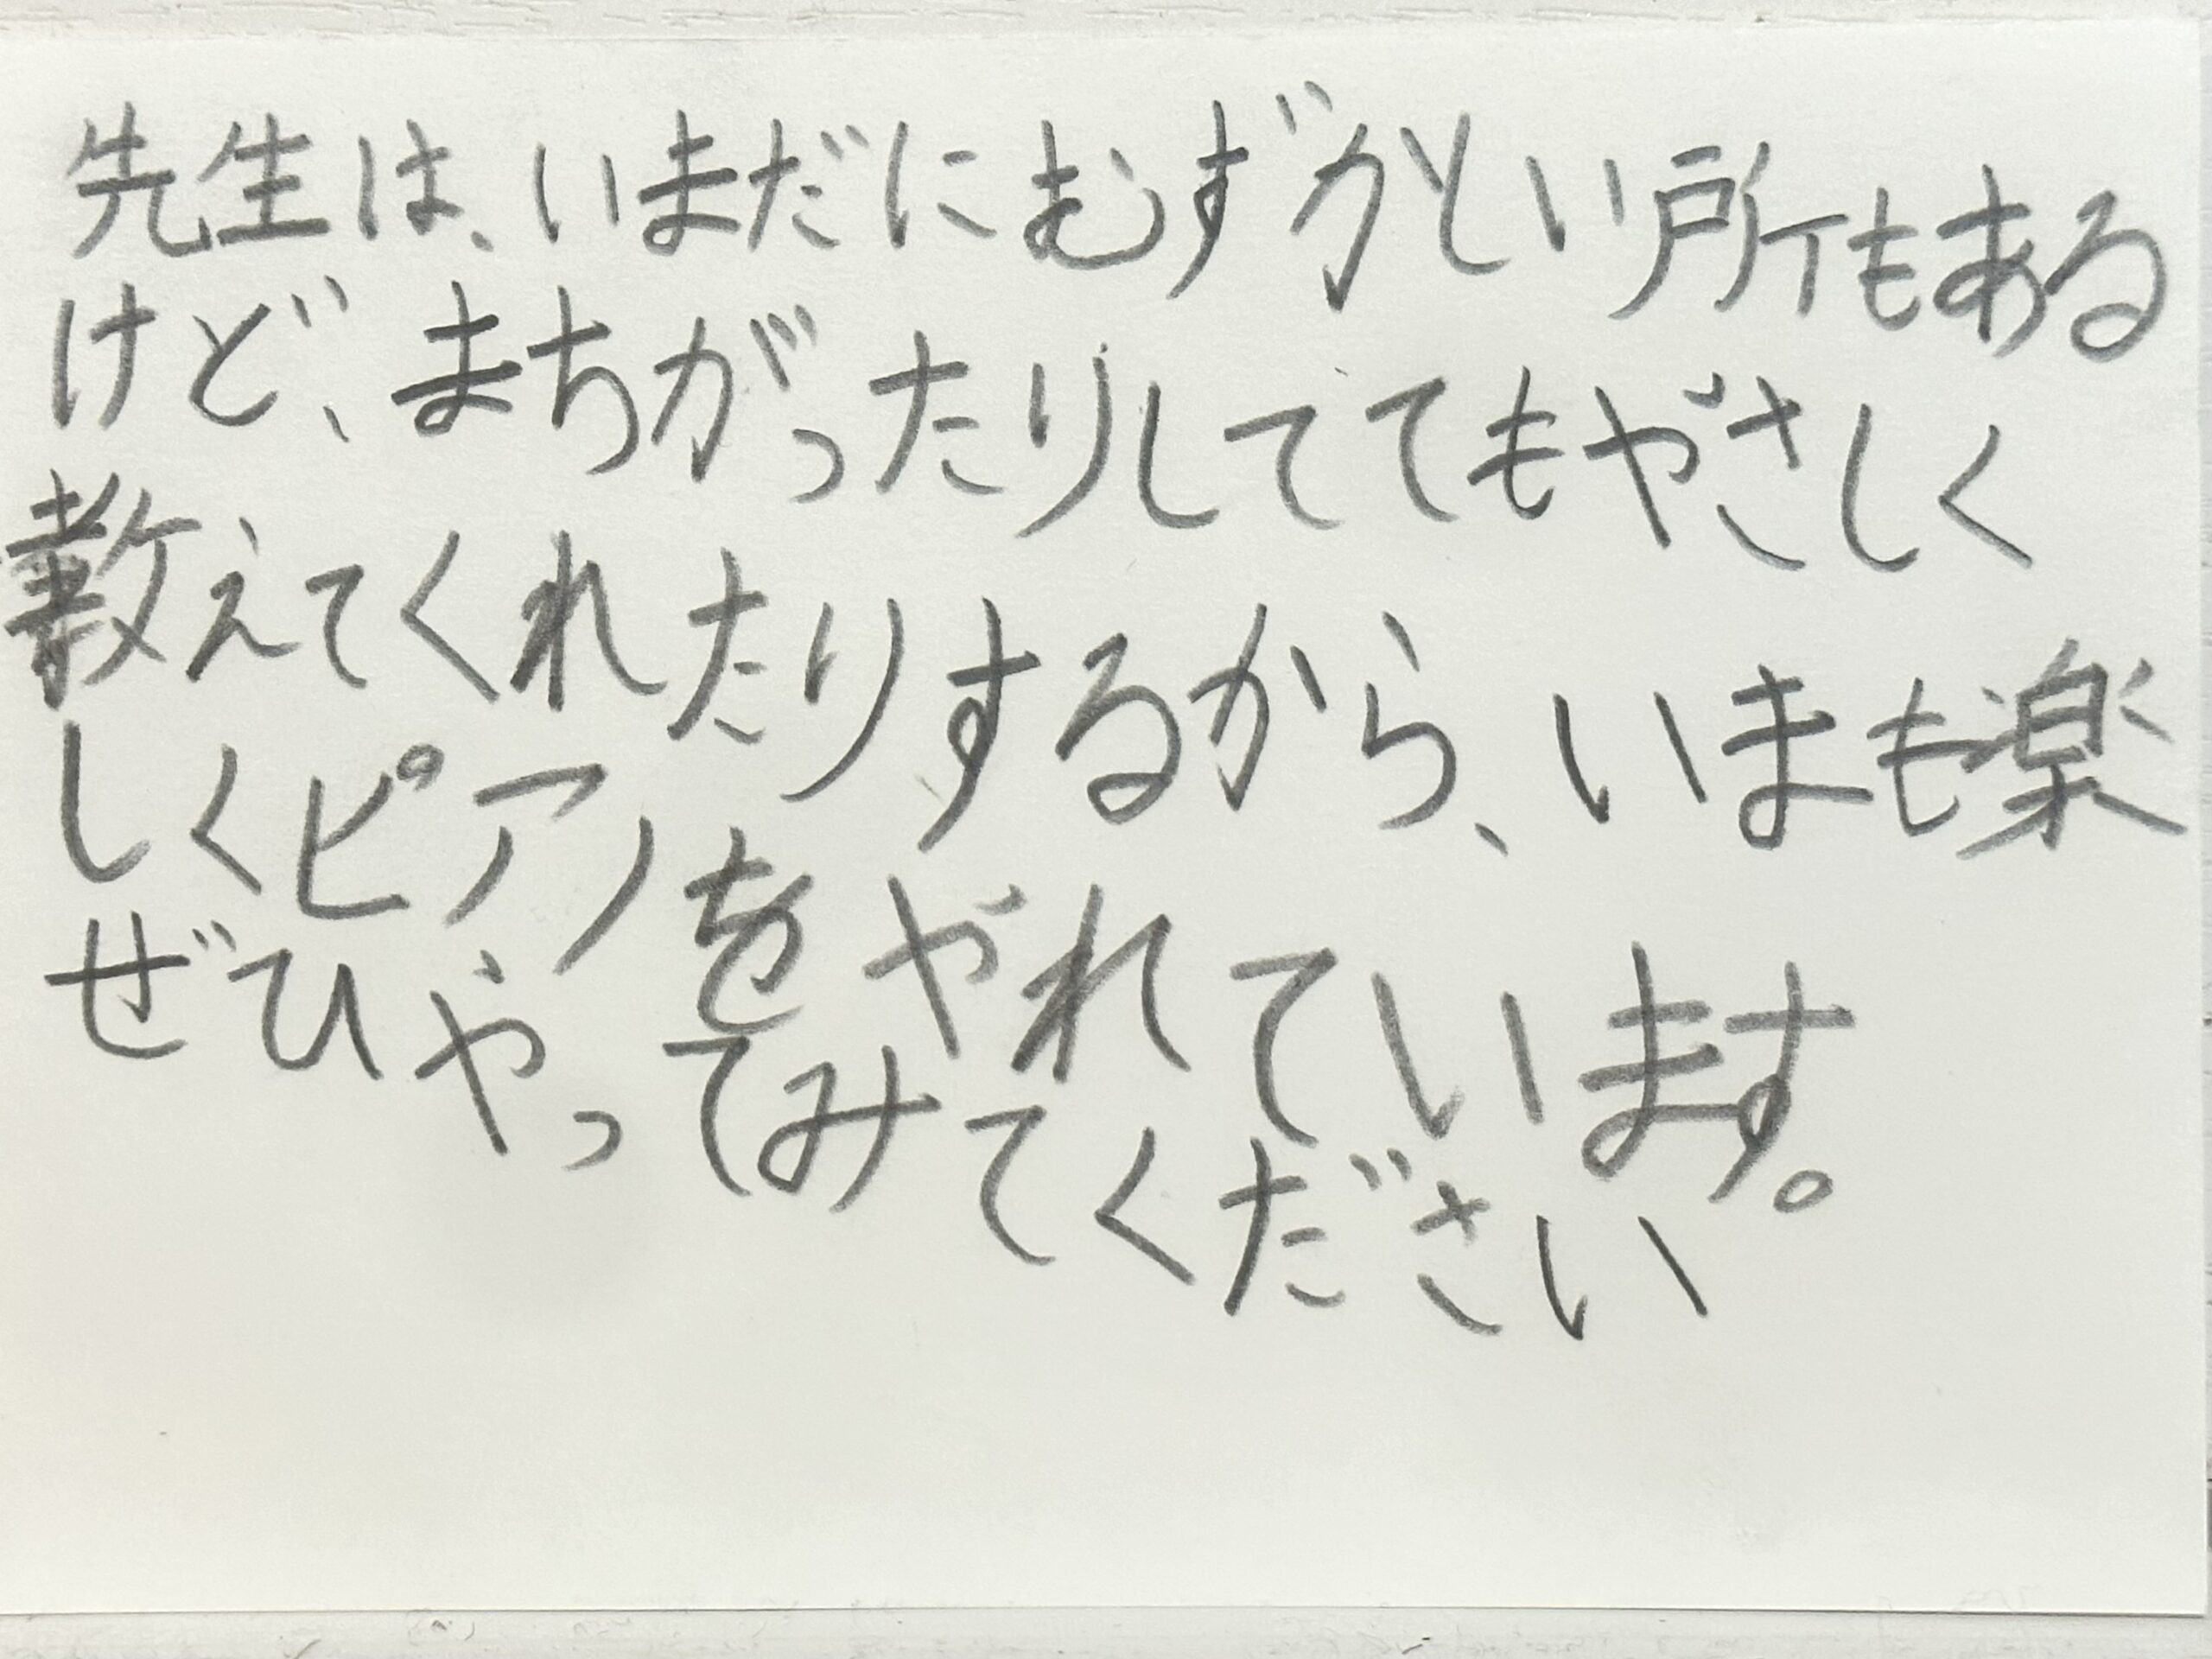 先生は、いまだにむずかしい所もある
けど、まちがったりしててもやさしく
教えてくれたりするから、いまも楽
しくピアノをやれています。
ぜひやってみてください